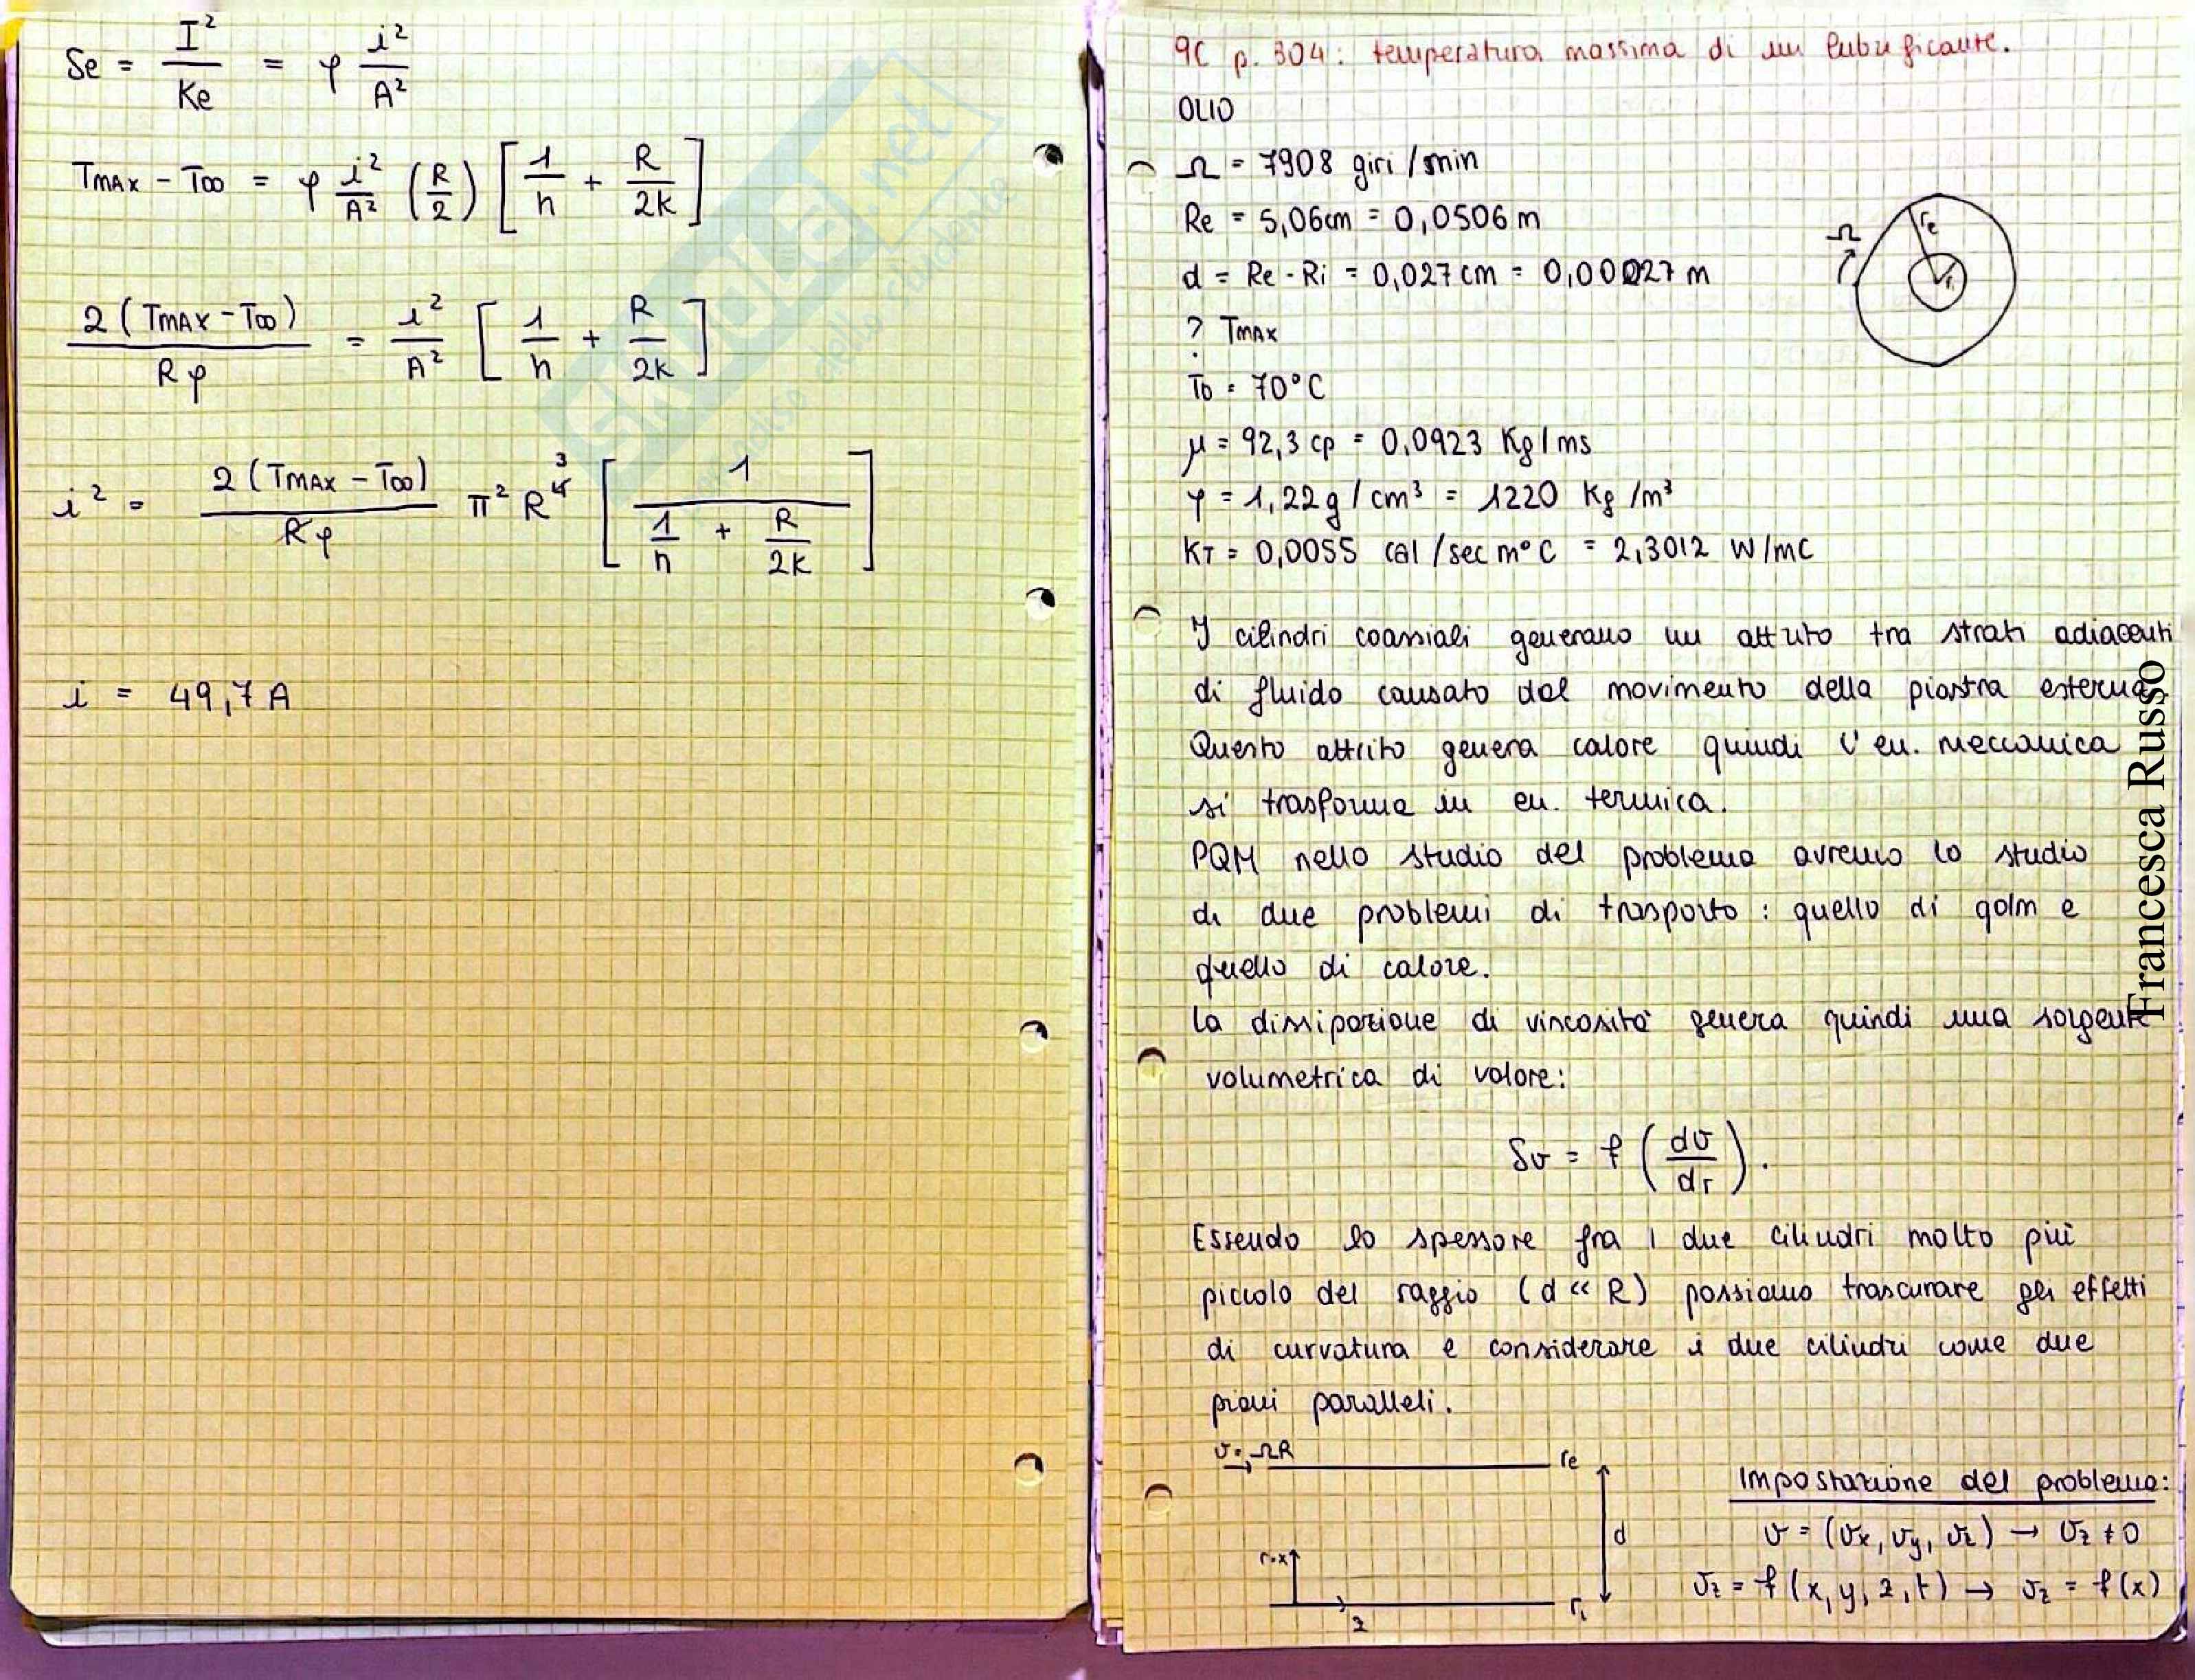 Se = I² / Ke = ρ i² / A²
TMAX - T∞ = ρ i²/A² (R/2) [ 1/h + R/2K ]
2 (TMAX - T∞) / Rρ = i²/A² [ 1/h + R/2K ]
i² = 2 (TMAX - T∞) / Rρ π² R⁴ ³ [ 1 / ( 1/h + R/2K ) ]
i = 49,7 A
SKUOLA.net
9C p. 304: temperatura massima di un lubrificante.
OLIO
Ω = 7908 giri/min
Re = 5,06cm = 0,0506 m
d = Re - Ri = 0,027 cm = 0,00027 m
? TMAX
T0 = 70°C
μ = 92,3 cp = 0,0923 Kg/ms
ρ = 1,22g/cm³ = 1220 Kg/m³
KT = 0,0055 cal/sec m°C = 2,3012 W/mC
Ω
re
ri
I cilindri coassiali generano un attrito tra strati adiacenti
di fluido causato dal movimento della piastra esterna.
Questo attrito genera calore quindi l'en. meccanica
si trasforma in en. termica.
PQM nello studio del problema avremo lo studio
di due problemi di trasporto: quello di qdm e
quello di calore.
La dissipazione di viscosità genera quindi una sorgente
volumetrica di valore:
Sv = f (dv/dr).
Essendo lo spessore fra i due cilindri molto più
piccolo del raggio (d << R) possiamo trascurare gli effetti
di curvatura e considerare i due cilindri come due
piani paralleli.
v = ΩR
re
d
r=x
z
ri
Impostazione del problema:
v = (vx, vy, vz) → vz ≠ 0
vz = f(x, y, z, t) → vz = f(x)
Francesca Russo